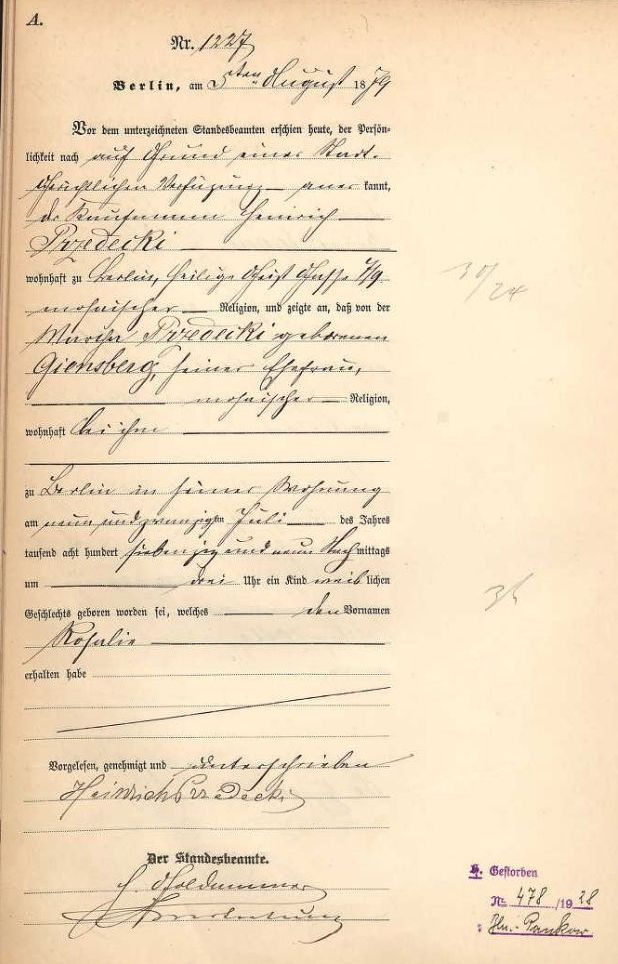 A.
Nr. 1227
Berlin, am 5ten August 1879
Vor dem unterzeichneten Standesbeamten erschien heute, der Persön-
lichkeit nach auf Grund einer Stadt-
gerichtlichen Verfügung aner kannt,
der Kaufmann Heinrich
Przedecki
wohnhaft zu Berlin, Heilige Geist Gasse
mosaischer Religion, und zeigte an, daß von der
Martha Przedecki geborenen
Giensberg, seiner Ehefrau,
mosaischer Religion,
wohnhaft bei ihm
zu Berlin in seiner Wohnung
am neun und zwanzigsten Juli des Jahres
tausend acht hundert siebenzig und neun Nachmittags
um drei Uhr ein Kind weiblichen
Geschlechts geboren worden sei, welches den Vornamen
Rosalie
erhalten habe
Vorgelesen, genehmigt und unterschrieben
Heinrich Przedecki
Der Standesbeamte.
Gestorben
№ 478 /1928
Bln.-Pankow